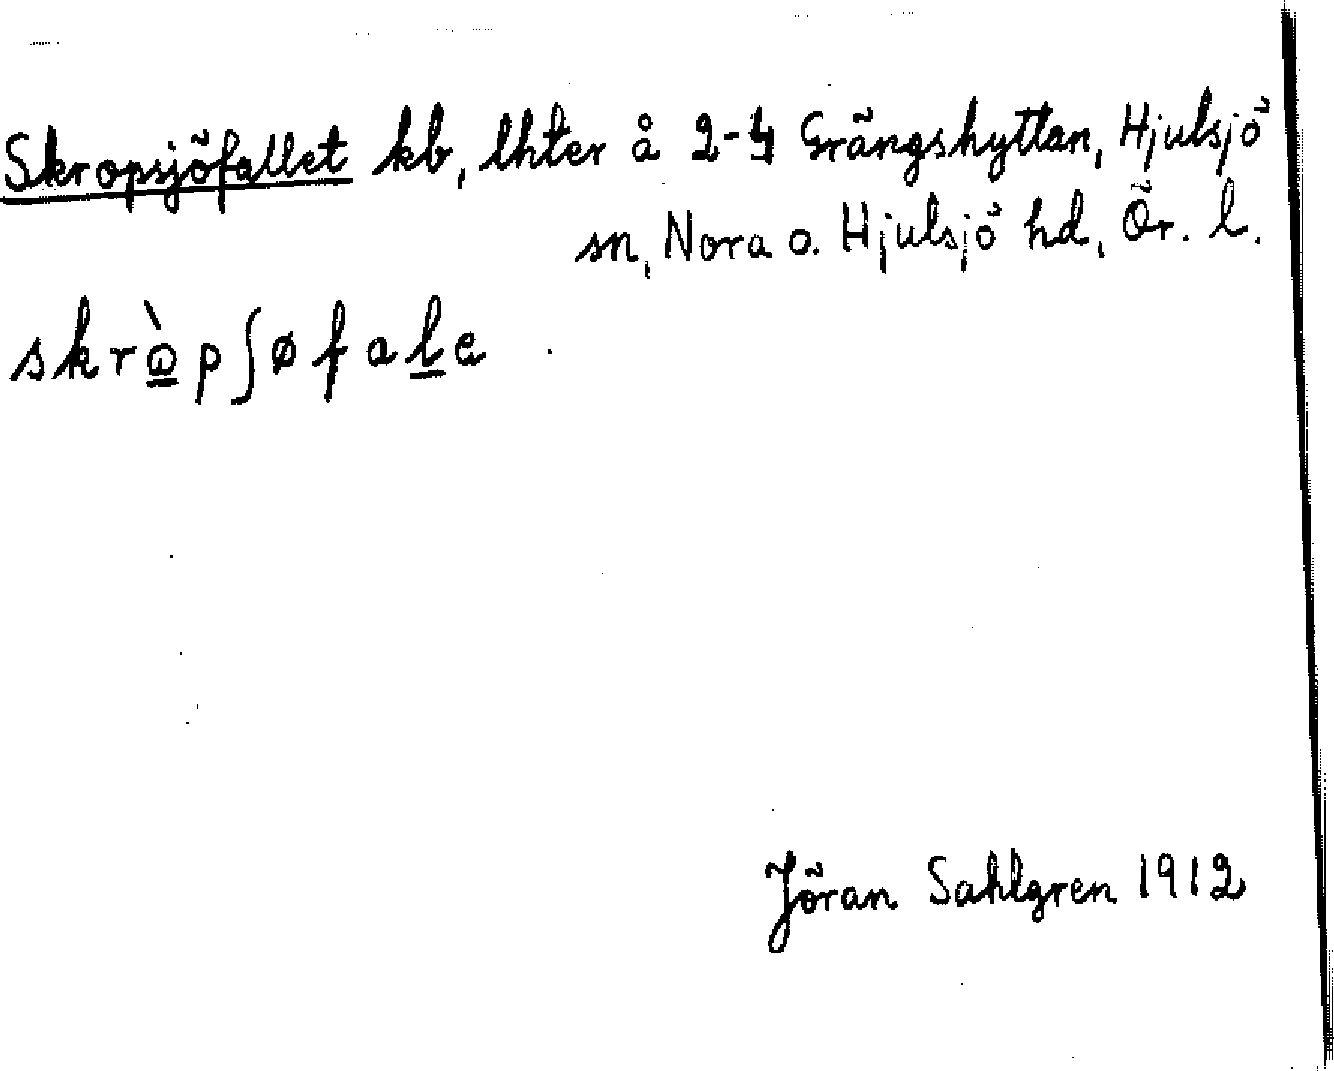 Skropsjöfallet kb, lhter å 2-4 Grängshyttan, Hjulsjö
sn, Nora o. Hjulsjö hd, Ör. l.
skrɷ̲̀pʃøfal̲e
Jöran Sahlgren 1912